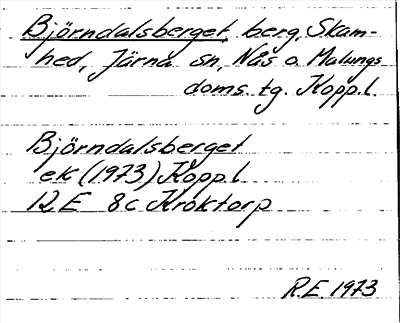 Björndalsberget, berg, Skam-
hed, Järna sn, Nås o. Malungs
doms. tg. Kopp.l.
Björndalsberget
ek (1973) Kopp.l
12 E 8c Kroktorp
R.E. 1973